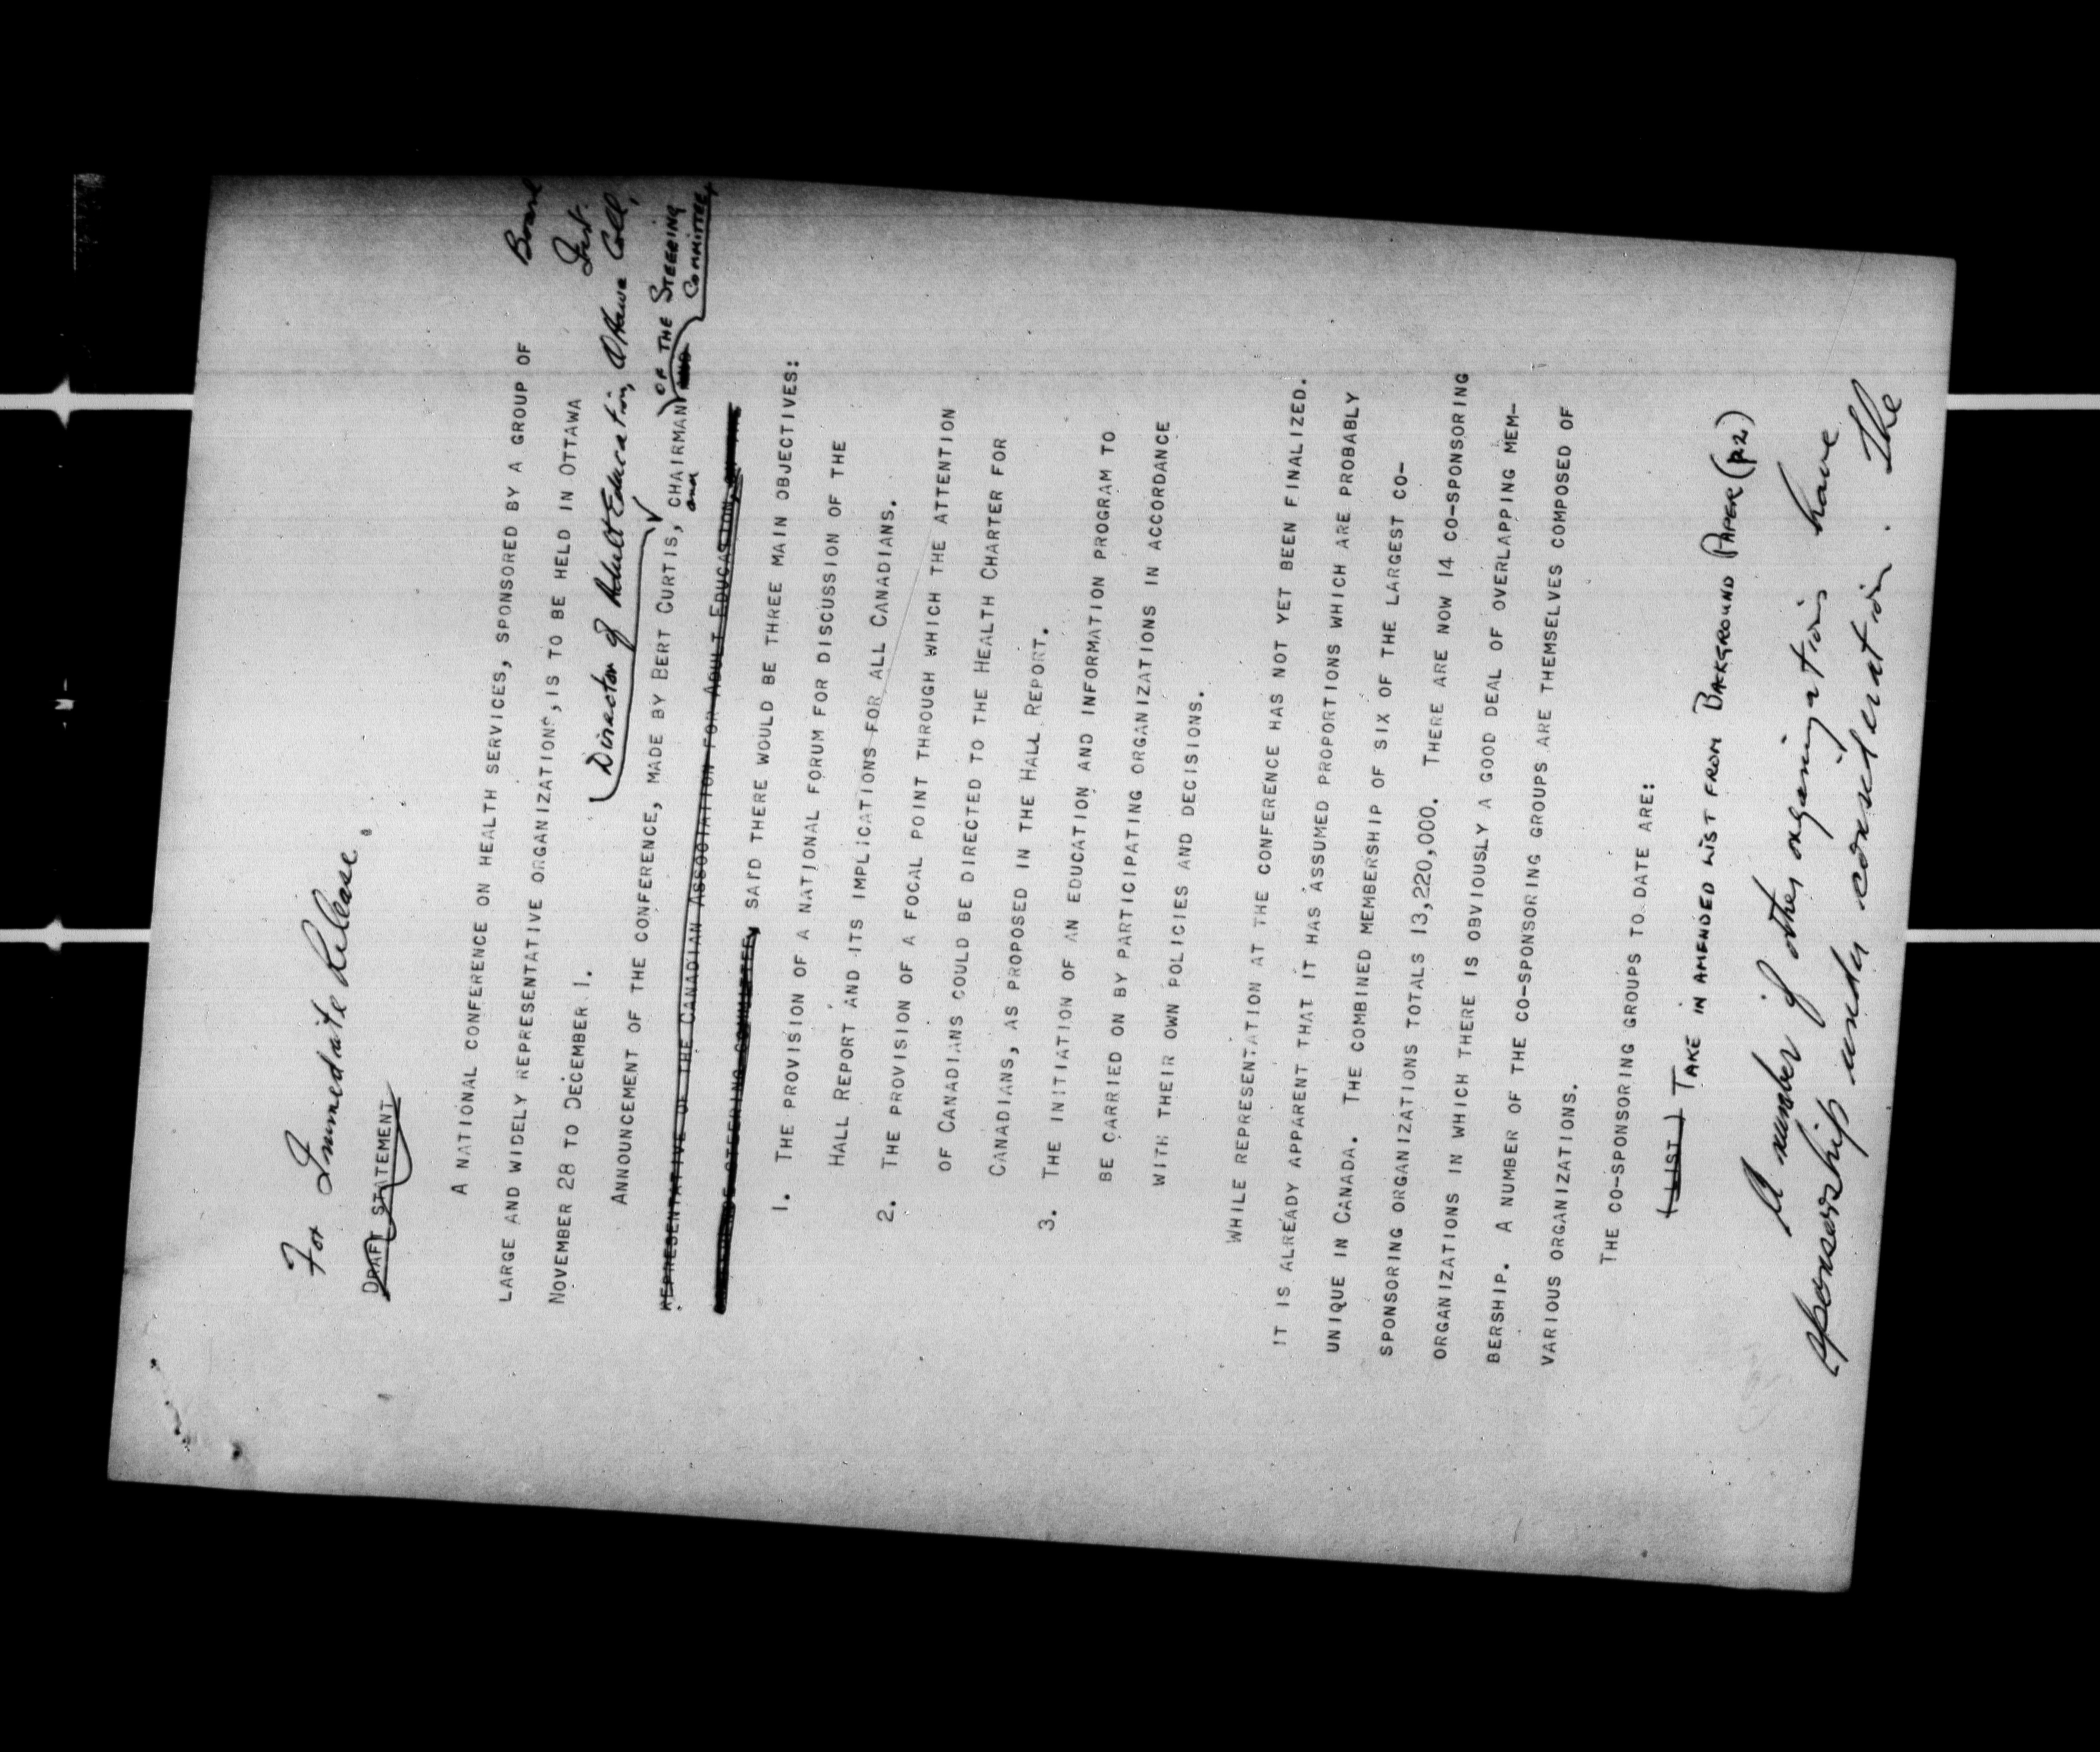 For Immediate Release.
DRAFT STATEMENT
A NATIONAL CONFERENCE ON HEALTH SERVICES, SPONSORED BY A GROUP OF
LARGE AND WIDELY REPRESENTATIVE ORGANIZATIONS, IS TO BE HELD IN OTTAWA
NOVEMBER 28 TO DECEMBER 1.
Board
Director of Adult Education, Ottawa Coll.
ANNOUNCEMENT OF THE CONFERENCE, MADE BY BERT CURTIS, CHAIRMAN OF THE STEERING
COMMITTEE,
and
REPRESENTATIVE OF THE CANADIAN ASSOCIATION FOR ADULT EDUCATION,
STEERING COMMITTEE, SAID THERE WOULD BE THREE MAIN OBJECTIVES:
1. THE PROVISION OF A NATIONAL FORUM FOR DISCUSSION OF THE
HALL REPORT AND ITS IMPLICATIONS FOR ALL CANADIANS.
2. THE PROVISION OF A FOCAL POINT THROUGH WHICH THE ATTENTION
OF CANADIANS COULD BE DIRECTED TO THE HEALTH CHARTER FOR
CANADIANS, AS PROPOSED IN THE HALL REPORT.
3. THE INITIATION OF AN EDUCATION AND INFORMATION PROGRAM TO
BE CARRIED ON BY PARTICIPATING ORGANIZATIONS IN ACCORDANCE
WITH THEIR OWN POLICIES AND DECISIONS.
WHILE REPRESENTATION AT THE CONFERENCE HAS NOT YET BEEN FINALIZED.
IT IS ALREADY APPARENT THAT IT HAS ASSUMED PROPORTIONS WHICH ARE PROBABLY
UNIQUE IN CANADA. THE COMBINED MEMBERSHIP OF SIX OF THE LARGEST CO-
SPONSORING ORGANIZATIONS TOTALS 13,220,000. THERE ARE NOW 14 CO-SPONSORING
ORGANIZATIONS IN WHICH THERE IS OBVIOUSLY A GOOD DEAL OF OVERLAPPING MEM-
BERSHIP. A NUMBER OF THE CO-SPONSORING GROUPS ARE THEMSELVES COMPOSED OF
VARIOUS ORGANIZATIONS.
THE CO-SPONSORING GROUPS TO DATE ARE:
(LIST) TAKE IN AMENDED LIST FROM BAKGROUND PAPER (P.2)
A number of other organizations have
sponsorship under consideration. The